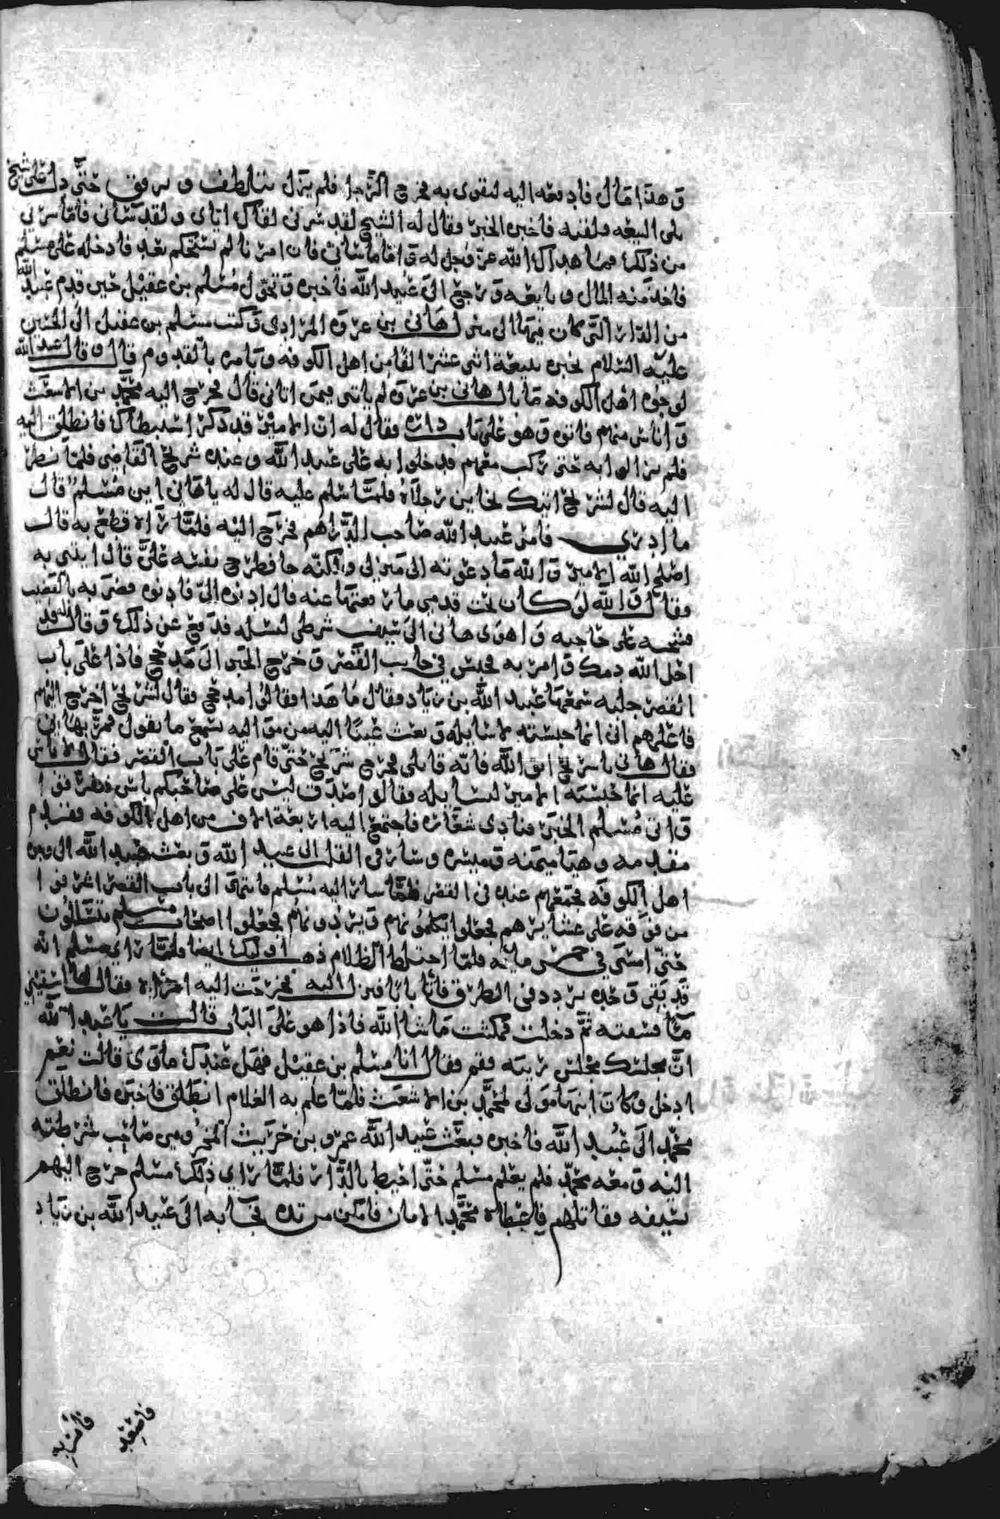 وهذا مال فادفعه اليه ليقوى به فخرج الرجل فلم يزل يتلطف و يرفق حتى دل على شيخ
يلى البيعه فلقيه فاخبره الخبر وقال له الشيخ لقد سرنى لقاك اياى و لقد ساني فاما سرنى
من ذلك فما هداك الله عز وجل له واما ما ساني فان امرنا لم يستحكم بعد فادخله على مسلم
فاخذ منه المال و بايعه ورجع الى عبيد الله فاخبره وتحول مسلم بن عقيل حين قدم عبيد الله
من الدار التى كان فيها الى منزل هانى بن عروة المرادى وكتب مسلم بن عقيل الى الحسين
عليه السلام يخبره ببيعة اثنى عشر الفا من اهل الكوفه و يامره بالقدوم قال وقال عبيد الله
لوجوه اهل الكوفه ما بال هانى بن عروة لم ياتنى فيمن اتانى قال فخرج اليه محمد بن الاشعث
و اناس منهم فاتوه وهو على باب داره وقال له ان الامير قد ذكرك استبطاك فانطلق اليه
فلم يزالوا به حتى ركب معهم فدخلوا به على عبيد الله و عنده شريح القاضى فلما نظر
اليه قال لشريح اتتك بحاين رجلاه فلما سلم عليه قال له يا هانى اين مسلم قال
ما ادرى فامر عبيد الله صاحب الدراهم فخرج اليه فلما رآه قطع به قال
اصلح الله الامير والله ما دعوته الى منزلى ولكنه جا فطرح نفسه على قال ايتنى به
وقال والله لو كان تحت قدمى ما رفعتهما عنه قال ادنوه الى فادنوه فضربه بالقضيب
فشجه على حاجبه و اهوى هانى الى سيف شرطى ليسله فدفع عن ذلك وقال قد
احل الله دمك وامر به فحبس في جانب القصر وخرج الخبر الى مذحج فاذا على باب
القصر جلبه سمعها عبيد الله بن زياد فقال ما هذا فقالوا مذحج فقال لشريح اخرج اليهم
فاعلمهم انى انما حبسته لاسايله وبعث عينا اليه من مواليه يسمع ما يقول فمر بهانى
فقال هانى يا شريح اتق الله فانه قاتلى فخرج شريح حتى قام على باب القصر فقال لا باس
عليه انما حبسه الامير ليسايله فقالوا صدق ليس على صاحبكم باس فتفرقوا
واتى مسلم الخبر فنادى شعاره فاجتمع اليه اربعة الاف من اهل الكوفه فقدم
مقدمه و هيا ميمنه وميسره و سار فى القلب الى عبيد الله وبعث عبيد الله الى وجوه
اهل الكوفه فجمعهم عنده فى القصر فلما سار اليه مسلم فانتهى الى باب القصر اشرفوا
من فوقه على عشايرهم فجعلوا يكلمونهم و يردونهم فجعلوا اصحاب مسلم يتسللون
حتى امسى في خمس مايه فلما اختلط الظلام ذهب اوليك ايضا فلما راى مسلم انه
قد بقى وحده يردد فى الطرق فاتا باب فنزل اليه فخرجت اليه امراة فقال لها اسقينى
ما فسقته ثم دخلت فمكثت ما شا الله فاذا هو على الباب قالت يا عبد الله
ان مجلسك مجلس ريبه فقم فقال انا مسلم بن عقيل فهل عندك ماوى قالت نعم
ادخل وكان ابنها مولى لمحمد بن الاشعث فلما علم به الغلام انطلق فاخبره فانطلق
محمد الى عبيد الله فاخبره فبعث عبيد الله عمرو بن حريث المخزومى صاحب شرطته
اليه ومعه محمد فلم يعلم مسلم حتى احيط بالدار فلما راى ذلك مسلم خرج اليهم
بسيفه فقاتلهم فاعطاه محمد الامان فامكن من يده فجا به الى عبيد الله بن زياد